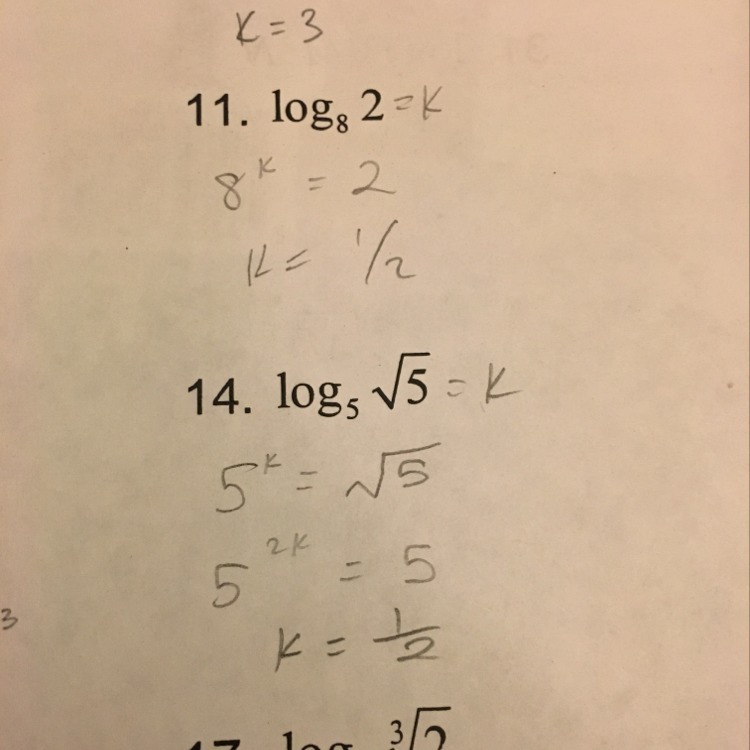 K = 3
11. log₈ 2 = K
8ᴷ = 2
K = 1/2
14. log₅ √5 = K
5ᴷ = √5
5²ᴷ = 5
3
K = 1/2
17. log ∛2